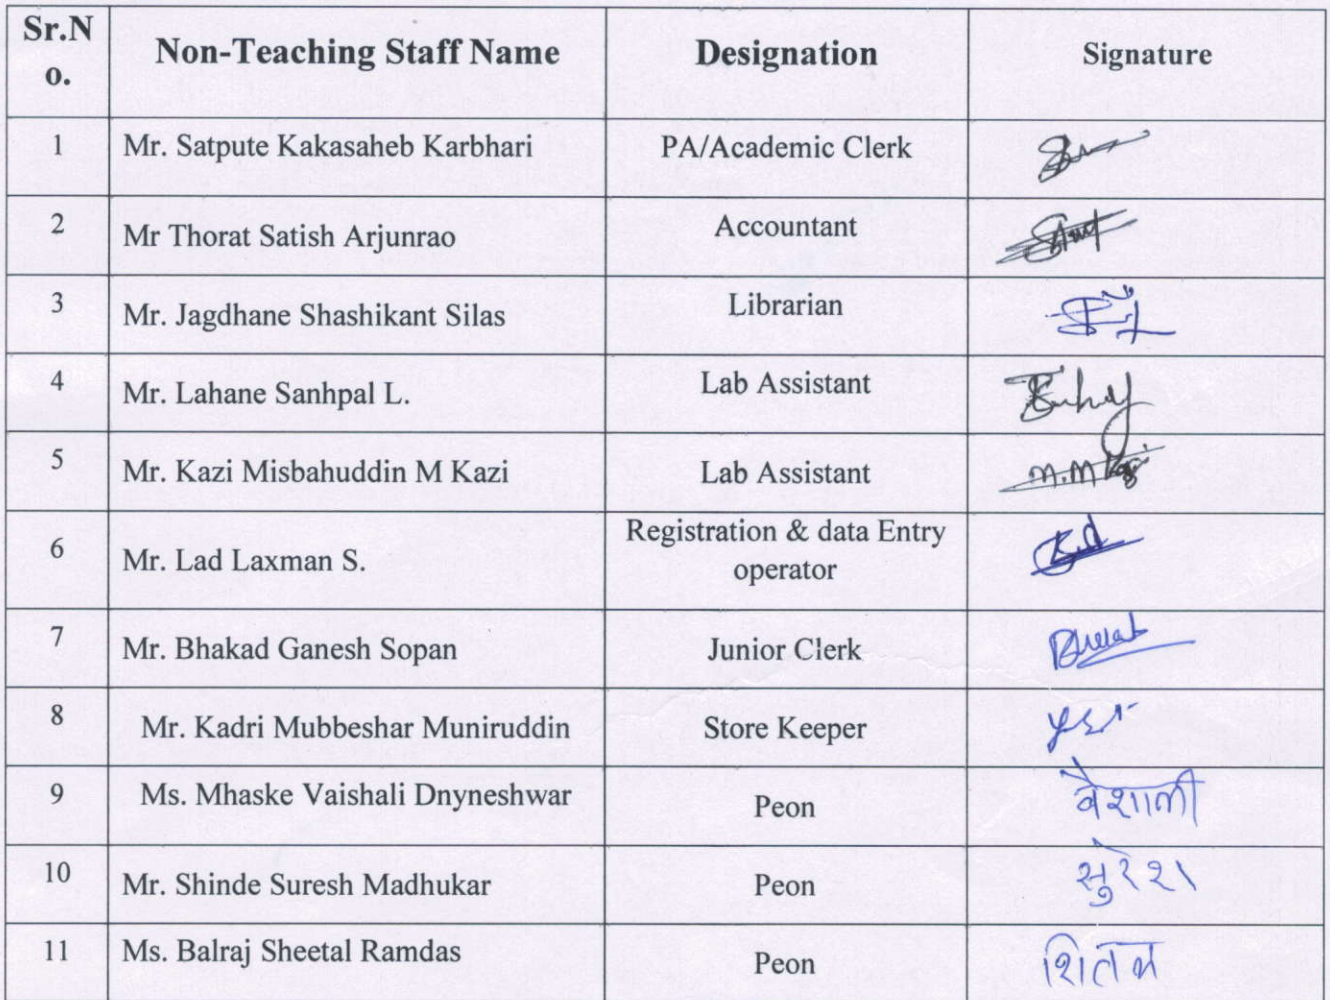 Sr.N
o.
Non-Teaching Staff Name
Designation
Signature
1
Mr. Satpute Kakasaheb Karbhari
PA/Academic Clerk
2
Mr Thorat Satish Arjunrao
Accountant
3
Mr. Jagdhane Shashikant Silas
Librarian
4
Mr. Lahane Sanhpal L.
Lab Assistant
5
Mr. Kazi Misbahuddin M Kazi
Lab Assistant
M.M Kazi
6
Mr. Lad Laxman S.
Registration & data Entry
operator
7
Mr. Bhakad Ganesh Sopan
Junior Clerk
8
Mr. Kadri Mubbeshar Muniruddin
Store Keeper
9
Ms. Mhaske Vaishali Dnyneshwar
Peon
वैशाली
10
Mr. Shinde Suresh Madhukar
Peon
सुरेश
11
Ms. Balraj Sheetal Ramdas
Peon